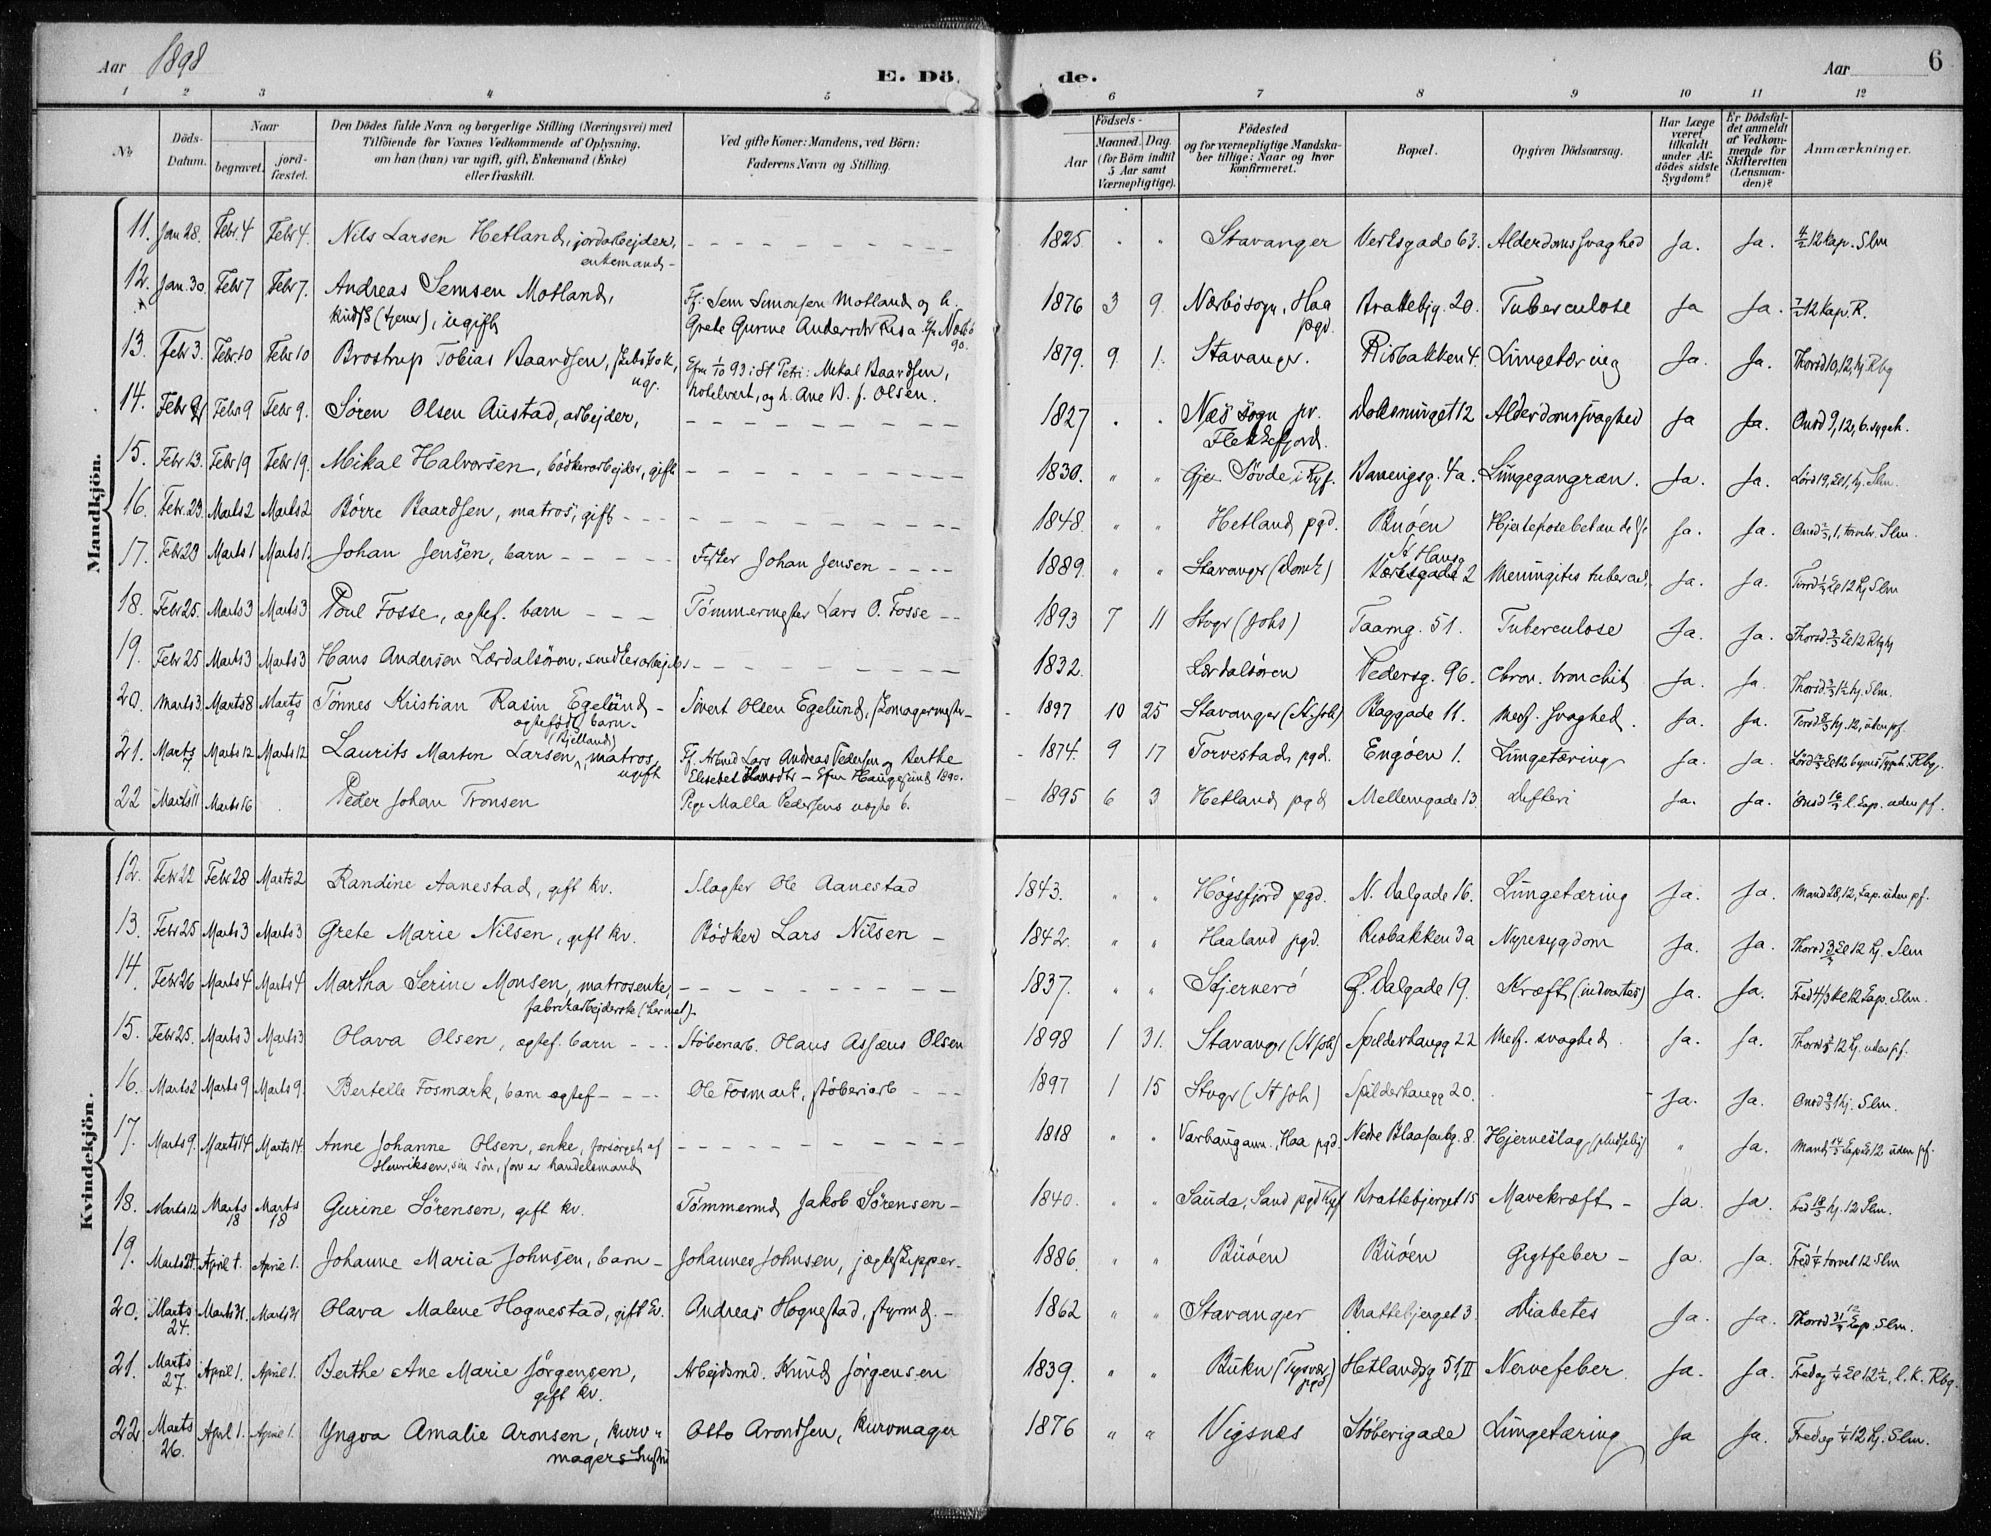 Aar 1898
E. Dö de.
Aar 6
1 2 3 4 5 6 7 8 9 10 11 12
No
Döds-Datum.
Naar
begravet.
jord-fæstet.
Den Dödes fulde Navn og borgerlige Stilling (Næringsvei) med
Tilföiende for Voxnes Vedkommende af Oplysning,
om han (hun) var ugift, gift, Enkemand (Enke)
eller fraskilt.
Ved gifte Koner: Mandens, ved Börn:
Faderens Navn og Stilling.
Födsels-
Aar
Maaned. Dag.
(for Börn indtil
5 Aar samt
Værnepligtige).
Födested
og for værnepligtige Mandska-
ber tillige: Naar og hvor
konfirmeret.
Bopæl.
Opgiven Dödsaarsag.
Har Læge
været
tilkaldt
under Af-
dödes sidste
Sygdom?
Er Dödsfal-
det anmeldt
af Vedkom-
mende for
Skifteretten
(Lensman-
den)?
Anmærkninger.
Mandkjön.
11. Jan 28. Febr. 4 Febr 4. Nils Larsen Hetland, jordarbejder, 1825 Stavanger Verksgade 63. Alderdomssvaghed Ja. Ja. 4/2 12 kap. Slm
enkemand
12. Jan. 30. Febr 7 Febr 7. Andreas Semsen Motland, Ff: Sem Simonsen Motland og h. 1876 3 9. Nærbø sogn, Haa Brattebjg. 20. Tuberculose Ja Ja. 7/2 12 kap. R.
kudsk (tjener), ugift Grete Gurine pgd.
90.
13. Febr 3. Febr. 10 Febr 10 Brostrup Tobias Baardsen, ugr. 1879. 9 1. Stavanger. Risbakken 4. Lungetæring Ja. Ja. Thorsd 10, 12, kj Rbg
93 i St Petri: Mikal Baardsen,
hotelvert, og h. Ane B. f. Olsen.
14. Febr Febr 9 Febr 9. Søren Olsen Austad, arbejder, 1827 Næs sogn pr. 12 Alderdomssvaghed Ja Ja. Onsd 9, 12, b. sygeh.
Flekkefjord.
15. Febr 13. Febr 19 Febr 19. Mikal Halvorsen, bødkerarbejder, gift 1830. Sövde i Ryf. 4a. Lungegangræn. Ja. Ja. Lörd 19, kj. Slm.
16. Febr. 23 Marts 2 Marts 2 Børre Baardsen, matros, gift 1848. Hetland pgd. Buöen Ja. Ja. Onsd 1, Slm.
17. Febr 23 Marts 1 Marts 1. Johan Jensen, barn Johan Jensen 1889. Stavanger (Domk) 2 Meningites tubercul. Ja. Ja. 12 kj Slm
18. Febr 25. Marts 3 Marts 3 Poul Fosse, ægtef. barn Tømmermester Lars O. Fosse 1893 7 11 Stvgr (Johs) Taarng. 51. Tuberculose Ja. Ja. Thorsd 3/3 kl 12
19. Febr 25 Marts 3 Marts 3 Hans Andersen Lærdalsören, snedkerarbejder 1832. Lærdalsören Pedersg. 96. chron. bronchit Ja. Ja. Thorsd. 3/3 kj. Slm.
20. Marts 3 Marts 8 Marts 9 Tønnes Kristian Rasin Egelund Sivert Olsen Egelund, skomagermester 1897 10 25 Stavanger (St. Joh) Baggade 11. Medf. svaghed. Ja. Ja. kj. 12, uden pf.
ægtefödt barn.
(Kjelland)
21. Marts 7. Marts 12 Marts 12 Laurits Martin Larsen, matros, Lars Andreas Pedersen og Berthe 1874. 9 17 Torvestad pgd. Engøen 1. Lungetæring Ja. Ja. Rbg.
ugift Elisabet Hansdtr - Haugesund 1890.
22 Marts 11 Marts 16 Peder Johan Tronsen Pige Malla Pedersens uægte b. 1895 6 3 Hetland pgd Mellemgade 13. Difteri Ja. Ja. Onsd 16/3 l. Kap. uden pf.
Kvindekjön.
12. Febr 22 Febr 28 Marts 2 Randine Aanestad, gift kv. Slagter Ole Aanestad 1843. Høgsfjord pgd. N. Dalgade 16. Lungetæring Ja. Ja. Mand 28, 12, Kap. uden pf.
13. Febr 25 Marts 3 Marts 3 Grete Marie Nilsen, gift kv. Bødker Lars Nilsen 1842. Haaland pgd. Risbakken 3a Nyresygdom Ja. Ja. Thorsd 3/3 kl 12 kj. Slm
14. Febr 26 Marts 4 Marts 4 Martha Serine Monsen, matrosenke, 1837. Stjernerö Ö. Dalgade 19. Kræft (indvortes) Ja. Ja. Fred 4/3 kl 12 Kap. Slm.
fabrikarbejderske (hermet).
15. Febr 25. Marts 3 Marts 3 Olava Olsen, ægtef. barn Støberiarb. Olaus Olsen 1898 1 31. Stavanger (St Joh) Spilderhaugg 22 Medf. svaghed Ja. Ja. Thorsd 3/3 12 kj. uden pf.
16. Marts 2 Marts 9 Marts 9. Bertelle Fosmark, barn ægtef Ole Fosmark, støberiarb 1897 1 15 Stvgr (St Joh) Spilderhaugg 20. Ja. Ja. Onsd 9/3 1 kj. Slm.
17. Marts 9. Marts 14 Marts 14. Anne Johanne Olsen, enke, forsørget af 1818 Varhaug ann., Haa pgd. Nedre Blaasenbg. 8. Hjerneslag, (pludselig) Ja. Mand 14/3 Kap kl 12 uden pf.
Henriksen, sin søn, som er handelsmand
18. Marts 12 Marts 18 Marts 18 Gurine Sörensen, gift kv. Tømmermd Jakob Sörensen 1840. Sauda, Sand pgd Ryf Brattebjerget 15 Mavekræft Ja. Ja. Fred 18/3 kj. 12 Slm.
19. Marts 24. April 1. April 1. Johanne Maria Johnsen, barn Johannes Johnsen, jægteskipper 1886. Buöen Buöen Gigtfeber Ja. Ja. Fred 1/4 torvet 12 Slm
20. Marts 24. Marts 31. Marts 31 Olava Malene Hognestad, gift kv. Andreas Hognestad, styrmd. 1862 Stavanger Brattebjerget 3 Diabetes Ja. Ja. Thorsd 31/3 12 Kap. Slm.
21. Marts 27. April 1. April 1. Berthe Ane Marie Jörgensen, Arbejdsmd. Knud Jörgensen 1839. Bukn (Tysvær pgd) Hetlandsg 51, II Nervefeber Ja. Ja. Fredag 1/4 kl 12 1/2, l. K. Rbg.
gift kv.
22 Marts 26. April 1. April 1. Yngva Amalie Aronsen, kurv- Otto Arondsen, kurvmager 1876 Vigsnes Støberigade Lungetæring Ja Ja. Fredag 1/4 12 kj. Slm.
magers hustru